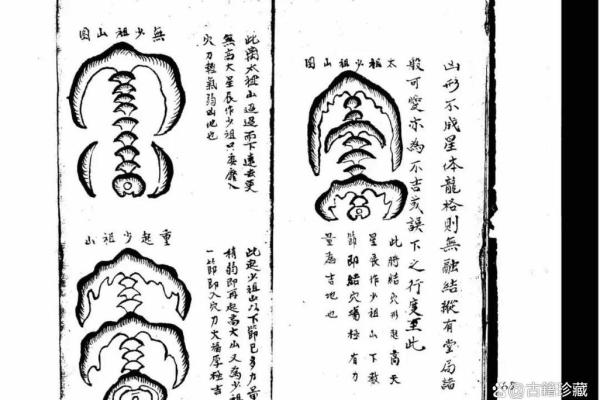 山形不成星体龍格則無融結縱有堂局諸
般可愛亦為不吉莫誤下之行度至此
太祖少祖山图
此將結穴形起高大
星辰作少祖山下数
節即結穴場極有力
量為吉地也
無少祖山图
此图太祖山迢迢而下遠去更
無高大星辰作少祖只委靡入
穴力輕氣弱凶地也
重起少祖山
此起少祖山以下節已多力量
稍弱即再起高大山又為少祖
一節即入穴力大福厚極吉
古籍珍藏